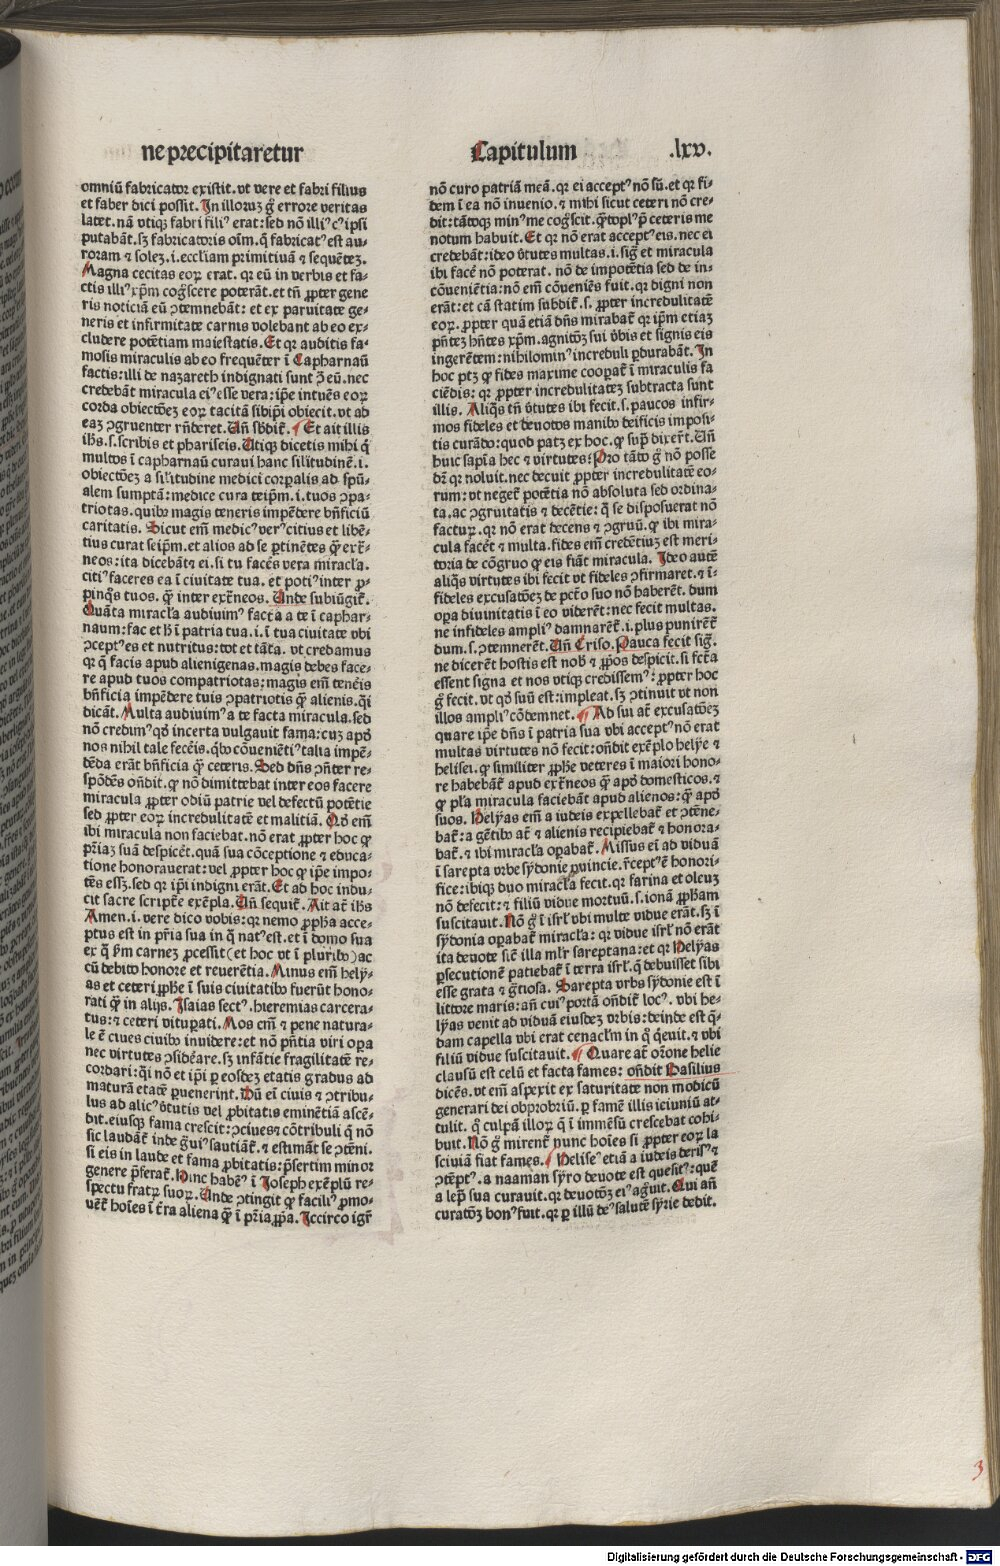 ne precipitaretur
Capitulum .lxv.
omniū fabricator existit. vt vere et fabri filius
et faber dici possit. In illoruꝫ g̃ errore veritas
latet. nā vtiqꝫ fabri filiꝰ erat: sed nō illiꝰ cꝰ ipsi
putabāt. sꝫ fabricatoris oīm. q̄ fabricatꝰ est au-
roram ⁊ solem. i. eccl̄iam primitiuā ⁊ sequētem.
Magna cecitas eoꝝ erat. qꝛ eū in verbis et fa-
ctis illiꝰ xp̄m cog̃scere poterāt. et tn̄ ꝓpter gene
ris noticiā eū ꝯtemnebāt: et ex paruitate ge-
neris et infirmitate carnis volebant ab eo ex-
cludere potētiam maiestatis. Et qꝛ auditis fa-
mosis miraculis ab eo frequēter ī Capharnaū
factis: illi de nazareth indignati sunt ꝯ̄ eū. nec
credebāt miracula eiꝰ esse vera: ip̄e intuēs eoꝝ
corda obiectōeꝫ eoꝝ tacitā sibip̄i obiecit. vt ad
eaꝫ ꝯgruenter rn̄deret. Un̄ sb̄dit̄. Et ait illis
ih̄s. s. scribis et phariseis. Utiqꝫ dicetis mihi q̄
multos ī capharnaū curaui hanc sil̄itudinē. i.
obiectōeꝫ a sil̄itudine medici corꝑalis ad sp̄u-
alem sumptā: medice cura teip̄m. i. tuos ꝯpa-
triotas. quibꝰ magis teneris impēdere bn̄ficiū
caritatis. Sicut em̄ medicꝰ verꝰ citius et libē-
tius curat seip̄m. et alios ad se ꝑtinētes q̄ꝫ ext̄-
neos: ita dicebāt ei. si tu facēs vera miracl̄a.
citiꝰ faceres ea ī ciuitate tua. et potiꝰ inter ꝓ-
pinq̄s tuos. q̄ꝫ inter ext̄neos. Unde subiūgit̄.
Quāta miracl̄a audiuimꝰ facta a te ī caphar-
naum: fac et h̄ ī patria tua. i. ī tua ciuitate vbi
ꝯceptꝰ es et nutritus: tot et tāta. vt credamus
qꝛ q̄ facis apud alienigenas. magis debes face-
re apud tuos compatriotas: magis em̄ tenēis
bn̄ficia impēdere tuis ꝯpatriotis q̄ꝫ alienis. q̄i
dicāt. Multa audiuimꝰ a te facta miracula. sed
nō credimꝰ qꝫ incerta vulgauit fama: cuꝫ apd̄
nos nihil tale fecēis. qb̄ꝰ cōueniētiꝰ talia impē-
dēda erāt bn̄ficia q̄ꝫ ceteris. Sed dn̄s ꝯn̄ter re-
spōdēs on̄dit. ꝙ nō dimittebat inter eos facere
miracula ꝓpter odiū patrie vel defectū potētie
sed ꝓpter eoꝝ incredulitatē et malitiā. Qd̄ em̄
ibi miracula non faciebat. nō erat ꝓpter hoc ꝙ
pr̄iaꝫ suā despicēt. quā sua cōceptione ⁊ educa-
tione honorauerat: vel ꝓpter hoc ꝙ ip̄e impo-
tēs eēꝫ. sed qꝛ ip̄i indigni erāt. Et ad hoc indu-
cit sacre scripte exēpla. Un̄ sequit̄. Ait at̄ ih̄s
Amen. i. vere dico vobis: qꝛ nemo ꝓph̄a acce-
ptus est in pr̄ia sua in q̄ natꝰ est. et ī domo sua
ex q̄ ẜm carneꝫ ꝓcessit (et hoc vt ī pluribꝰ) ac
cū debito honore et reuerētia. Minus em̄ hely-
as et ceteri ꝓph̄e ī suis ciuitatibꝰ fuerūt hono-
rati q̄ꝫ in alijs. Isaias sectꝰ. hieremias carcera-
tus: ⁊ ceteri vituꝑati. Mos em̄ ⁊ pene natura-
le ē ciues ciuibꝰ inuidere: et nō pn̄tia viri oꝑa
nec virtutes ꝯsiderare. sꝫ infātie fragilitatē re-
cordari: q̄i nō et ip̄i ꝑ eosdeꝫ etatis gradus ad
maturā etatē ꝑuenerint. Dū ei ciuis ⁊ ꝯtribu-
lus ad alicꝰ v̄tutis vel ꝓbitatis eminētiā ascē-
dit. eiusqꝫ fama crescit: ꝯciues ⁊ cōtribuli q̄ nō
sic laudāt̄ inde g̃uiꝰ sautiāt̄. ⁊ estimāt se ꝯtēni.
si eis in laude et fama ꝓbitatis: p̄sertim minor
genere p̄ferat̄. Hunc habēꝰ ī Joseph exēplū re-
spectu fratꝝ suoꝝ. Unde ꝯtingit ꝙ faciliꝰ ꝓmo-
uēt̄ hoīes ī t̄ra aliena q̄ꝫ ī pr̄ia ꝓp̄a. Iccirco igr̄
nō curo patriā meā. qꝛ ei acceptꝰ nō sū. et qꝛ fi-
dem ī ea nō inuenio. ⁊ mihi sicut ceteri nō cre-
dit: tātoqꝫ minꝰ me cog̃scit. q̄toplꝰ p̄ ceteris me
notum habuit. Et qꝛ nō erat acceptꝰ eis. nec ei
credebāt: ideo v̄tutes multas. i. sig̃ et miracula
ibi facē nō poterat. nō de impotētia sed de in-
cōueniētia: nō em̄ cōueniēs fuit. qꝛ digni non
erāt: et cā statim subdit̄. s. ꝓpter incredulitatē
eoꝝ. ꝓpter quā etiā dn̄s mirabat̄ qꝛ ip̄m etiaꝫ
pn̄teꝫ hn̄tes xp̄m. agnitōꝫ sui v̄bis et signis eis
ingerētem: nihilominꝰ increduli ꝑdurabāt. In
hoc ptꝫ ꝙ fides maxime cooꝑat̄ ī miraculis fa
ciēdis: qꝛ ꝓpter incredulitateꝫ subtracta sunt
illis. Aliq̄s tn̄ v̄tutes ibi fecit. s. paucos infir-
mos fideles et deuotos manibꝰ deificis imposi-
tis curādo: quod patꝫ ex hoc. ꝙ sup̄ dixer̄t. Un̄
huic sapīa hec ⁊ virtutes? Pro tāto g̃ nō posse
dr̄ qꝛ noluit. nec decuit ꝓpter incredulitatē eo-
rum: vt neget̄ potētia nō absoluta sed ordina-
ta. ac ꝯgruitatis ⁊ decētie: q̄ se disposuerat nō
facturꝝ. qꝛ nō erat decens ⁊ ꝯgruū. ꝙ ibi mira-
cula facēt ⁊ multa. fides em̄ credētiuꝫ est meri-
toria de cōgruo ꝙ eis fiāt miracula. Ideo autē
aliq̄s virtutes ibi fecit vt fideles ꝯfirmaret. ⁊ ī-
fideles excusatōeꝫ de pctō suo nō haberēt. dum
oꝑa diuinitatis ī eo viderēt: nec fecit multas.
ne infideles ampliꝰ damnarēt̄. i. plus punirēt̄
dum. s. ꝯtemnerēt. Un̄ Criso. Pauca fecit sig̃.
ne dicerēt hostis est nob̄ ⁊ ꝓp̄os despicit. si fctā
essent signa et nos vtiqꝫ credissemꝰ: ꝓpter hoc
g̃ fecit. vt qd̄ suū est: impleat. sꝫ ꝯtinuit vt non
illos ampliꝰ cōdemnet. Ad sui at̄ excusatōeꝫ
quare ip̄e dn̄s ī patria sua vbi acceptꝰ nō erat
multas virtutes nō fecit: on̄dit exēplo helye ⁊
helisei. ꝙ similiter ꝓph̄e veteres ī maiori hono-
re habebāt̄ apud ext̄neos q̄ꝫ apd̄ domesticos. ⁊
ꝙ pl̄a miracula faciebāt apud alienos: q̄ꝫ apd̄
suos. Helyas em̄ a iudeis expellebat̄ et ꝯtēne-
bat̄: a gētibꝰ at̄ ⁊ alienis recipiebat̄ ⁊ honora-
bat̄. ⁊ ibi miracl̄a oꝑabat̄. Missus ei ad viduā
ī sarepta vrbe sydonie ꝓuincie. r̄ceptꝰ ē honori-
fice: ibiqꝫ duo miracl̄a fecit. qꝛ farina et oleuꝫ
nō defecit: ⁊ filiū vidue mortuū. s. ionā ꝓph̄am
suscitauit. Nō g̃ ī isrl̄ vbi multe vidue erāt. sꝫ ī
sydonia oꝑabat̄ miracl̄a: qꝛ vidue isrl̄ nō erāt
ita deuote sic̄ illa ml̄r sareptana: et qꝛ Helyas
ꝑsecutionē patiebat̄ ī terra isrl̄. q̄ debuisset sibi
esse grata ⁊ g̃tiosa. Sarepta vrbs sydonie est ī
littore maris: an̄ cuiꝰ portā on̄dit̄ locꝰ. vbi he-
lyas venit ad viduā eiusdeꝫ vrbis: deinde est q̄-
dam capella vbi erat cenacl̄m in q̄ q̄euit. ⁊ vbi
filiū vidue suscitauit. Quare at̄ or̄one helie
clausū est celū et facta fames: on̄dit Basilius
dicēs. vt em̄ aspexit ex saturitate non modicū
generari dei obprobriū. ꝑ famē illis ieiuniū at-
tulit. q̄ culpā illoꝝ q̄ ī immēsū crescebat cohi-
buit. Nō g̃ mirent̄ nunc hoīes si ꝓpter eoꝝ la
sciuiā fiat fames. Heliseꝰ etiā a iudeis derisꝰ ⁊
ꝯtēptꝰ. a naaman syro deuote est quesitꝰ: quē
a lep̄ sua curauit. qꝛ deuotōꝫ eiꝰ ag̃uit. Qui an̄
curatōꝫ bonꝰ fuit. qꝛ ꝑ illū deꝰ salutē syrie dedit.
3
Digitalisierung gefördert durch die Deutsche Forschungsgemeinschaft - DFG